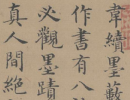 韋續墨藪
作書有八
必觀墨蹟
真人間絶